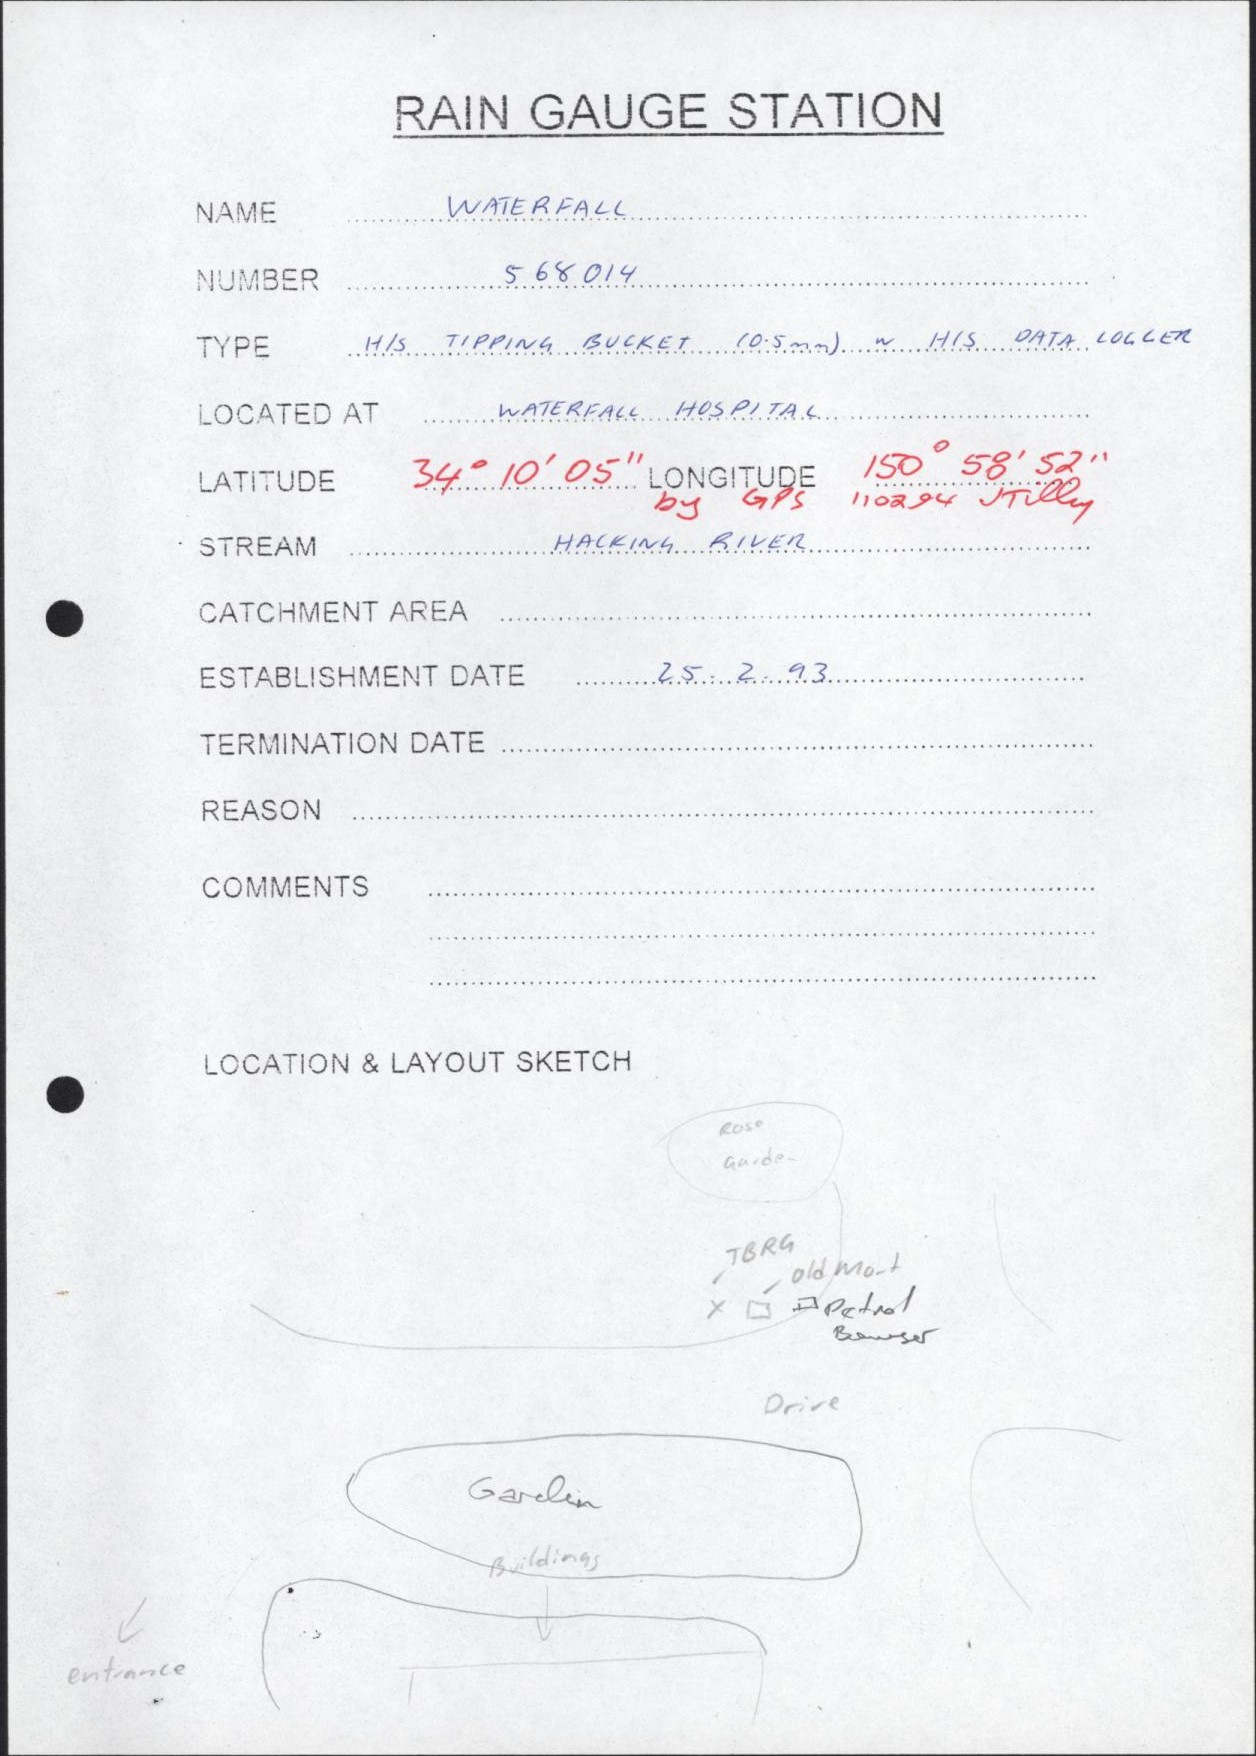 RAIN GAUGE STATION
NAME WATERFALL
NUMBER 568014
TYPE H/S TIPPING BUCKET (0.5mm) w H/S DATA LOGGER
LOCATED AT WATERFALL HOSPITAL
LATITUDE 34° 10' 05" LONGITUDE 150° 58' 52"
by GPS 110294 JTilley
STREAM HACKING RIVER
CATCHMENT AREA
ESTABLISHMENT DATE 25.2.93
TERMINATION DATE
REASON
COMMENTS
LOCATION & LAYOUT SKETCH
Rose
Garden
TBRG
old
X Petrol
Bowser
Drive
Garden
Buildings
entrance